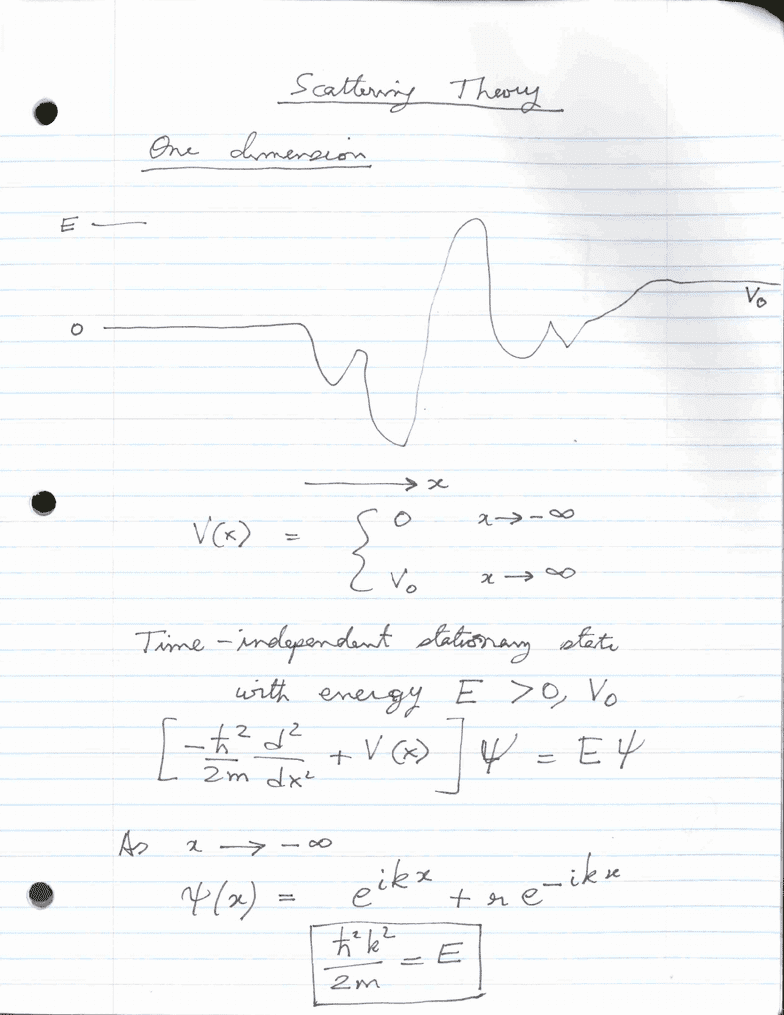 Scattering Theory
One dimension
E
V₀
0
→ x
V(x) = { 0 x → -∞
V₀ x → ∞
Time-independent stationary state
with energy E > 0, V₀
[ -ħ²/2m d²/dx² + V(x) ] Ψ = E Ψ
As x → -∞
Ψ(x) = e^{ikx} + r e^{-ikx}
ħ²k²/2m = E